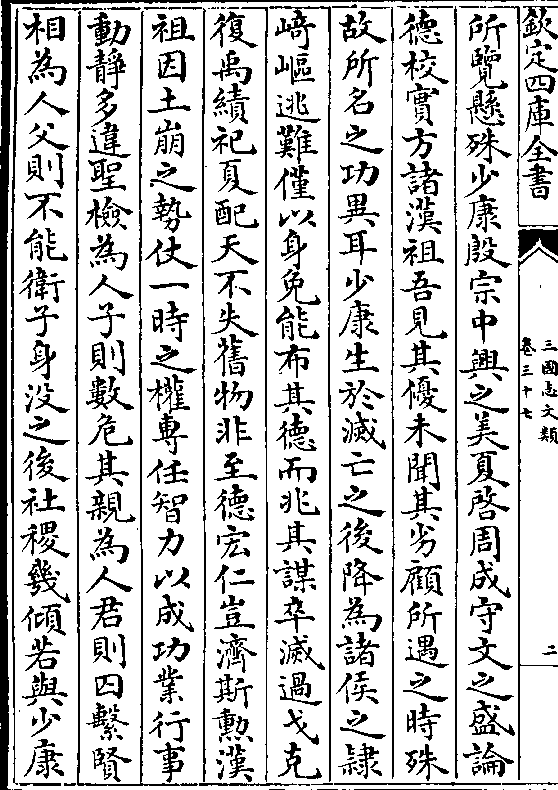 欽定四庫全書
三國志文類
卷三十七
二
所覽懸殊少康殷宗中興之美夏啓周成守文之盛論
德校實方諸漢祖吾見其優未聞其劣顧所遇之時殊
故所名之功異耳少康生於滅亡之後降為諸侯之隷
崎嶇逃難僅以身免能布其德而兆其謀卒滅過戈克
復禹績祀夏配天不失舊物非至德宏仁豈濟斯勲漢
祖因土崩之勢仗一時之權専任智力以成功業行事
動靜多違聖檢為人子則數危其親為人君則囚繫賢
相為人父則不能衛子身没之後社稷幾傾若與少康